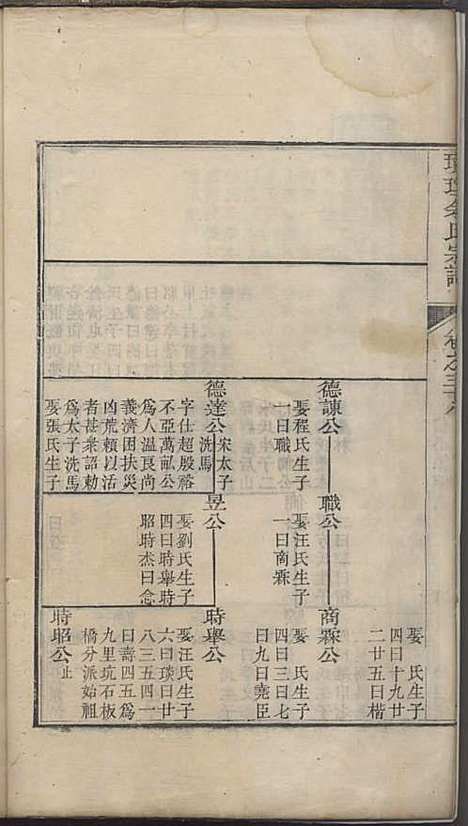 余氏宗譜
卷之三
娶 氏生子
四曰十九廿
二廿五曰楷
德諫公
娶程氏生子
一曰職
職公
娶汪氏生子
一曰商霖
商霖公
娶 氏生子
四曰三曰七
曰九曰堯臣
德達公
宋太子
洗馬
字仕超殷裕
不亞萬訿公
為人溫良尚
義濟困扶災
凶荒賴以活
者甚衆詔勅
為太子洗馬
娶張氏生子
昱公
娶劉氏生子
四曰時舉時
昭時杰曰念
時舉公
娶汪氏生子
六曰琰曰廿
八三五四一
曰壽四五為
九里坑石板
橋分派始祖
時昭公
止